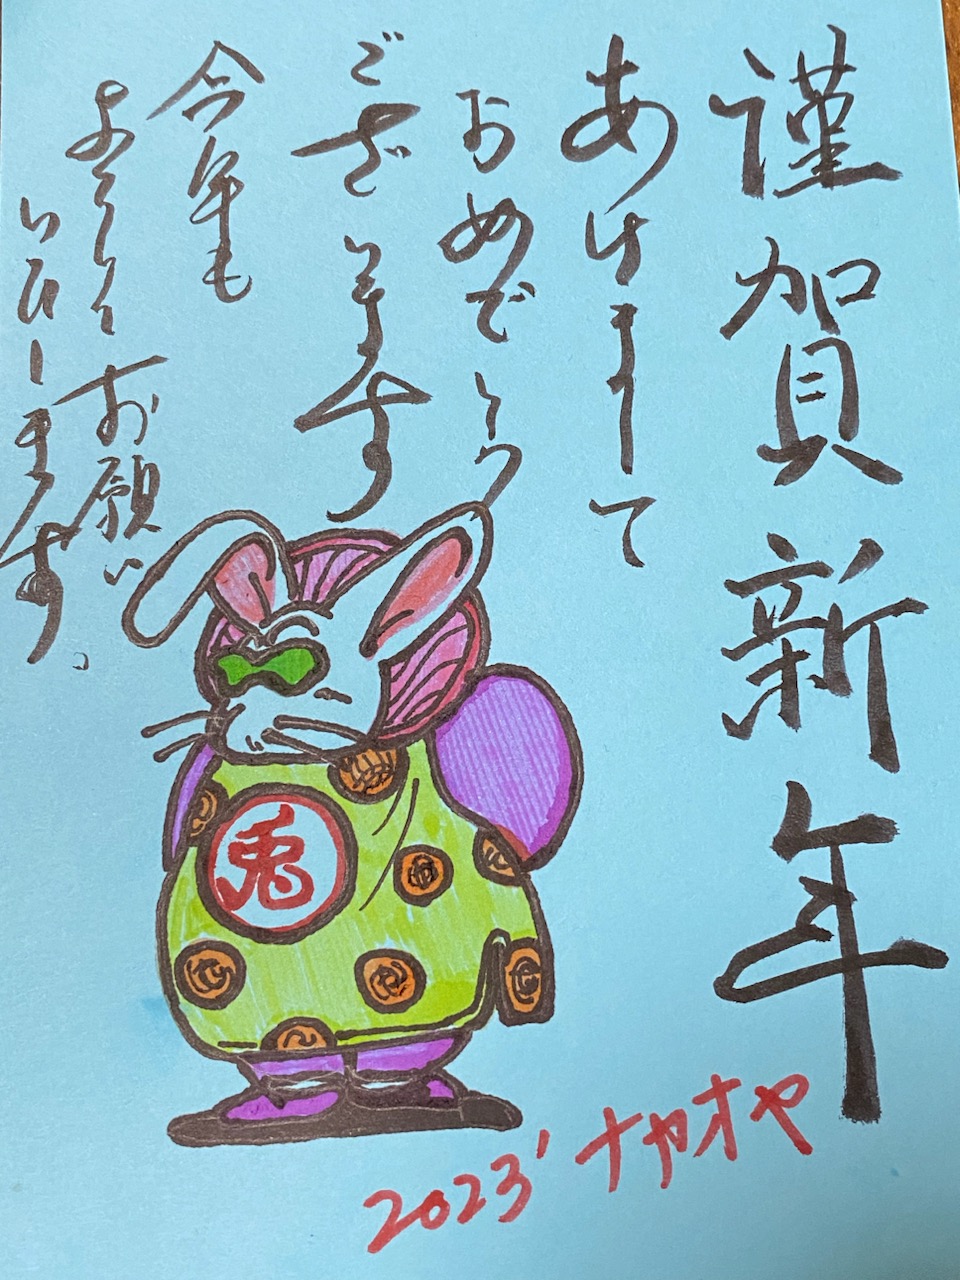 謹賀新年
あけまして
おめでとう
ございます
今年も
よろしくお願い
いたします。
兎
2023'ナヤオヤ